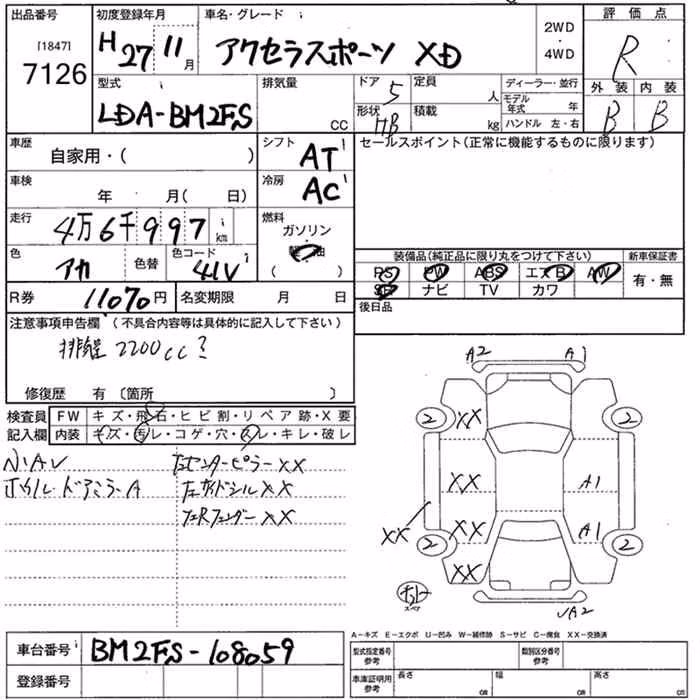 出品番号
[1847]
7126
初度登録年月
H27 11月
車名・グレード
アクセラスポーツ XD
2WD
・
4WD
評価点
R
外装 内装
B B
型式
LDA-BM2FS
排気量
CC
ドア 5
形状 HB
定員
人
積載
kg
ディーラー・並行
モデル年式 年
ハンドル 左・右
車歴
自家用・( )
シフト
AT
セールスポイント(正常に機能するものに限ります)
車検
年 月( 日)
冷房
AC
走行
4万6千997km
燃料
ガソリン
( )
色
アカ
色替
色コード
41V
装備品(純正品に限り丸をつけて下さい)
PS PW ABS エアB AW
SR ナビ TV カワ
新車保証書
有・無
R券 11070円
名変期限 月 日
後日品
注意事項申告欄 (不具合内容等は具体的に記入して下さい)
排気量 2200cc?
修復歴 有 〔箇所 〕
検査員記入欄
FW キズ・飛石・ヒビ割・リペア跡・X要
内装 キズ・汚レ・コゲ・穴・スレ・キレ・破レ
ホイル・ドアミラーA
左センターピラーXX
左サイドシルXX
左RフェンダーXX
A2 A1
2 XX 2
XX A1
XX XX A1
2 XX 2
スペア
A2
A-キズ E-エクボ U-凹み W-補修跡 S-サビ C-腐食 XX-交換済
車台番号 BM2FS-108059
登録番号
型式指定番号
参考
類別区分番号
参考
車庫証明用
参考
長さ cm
幅 cm
高さ cm